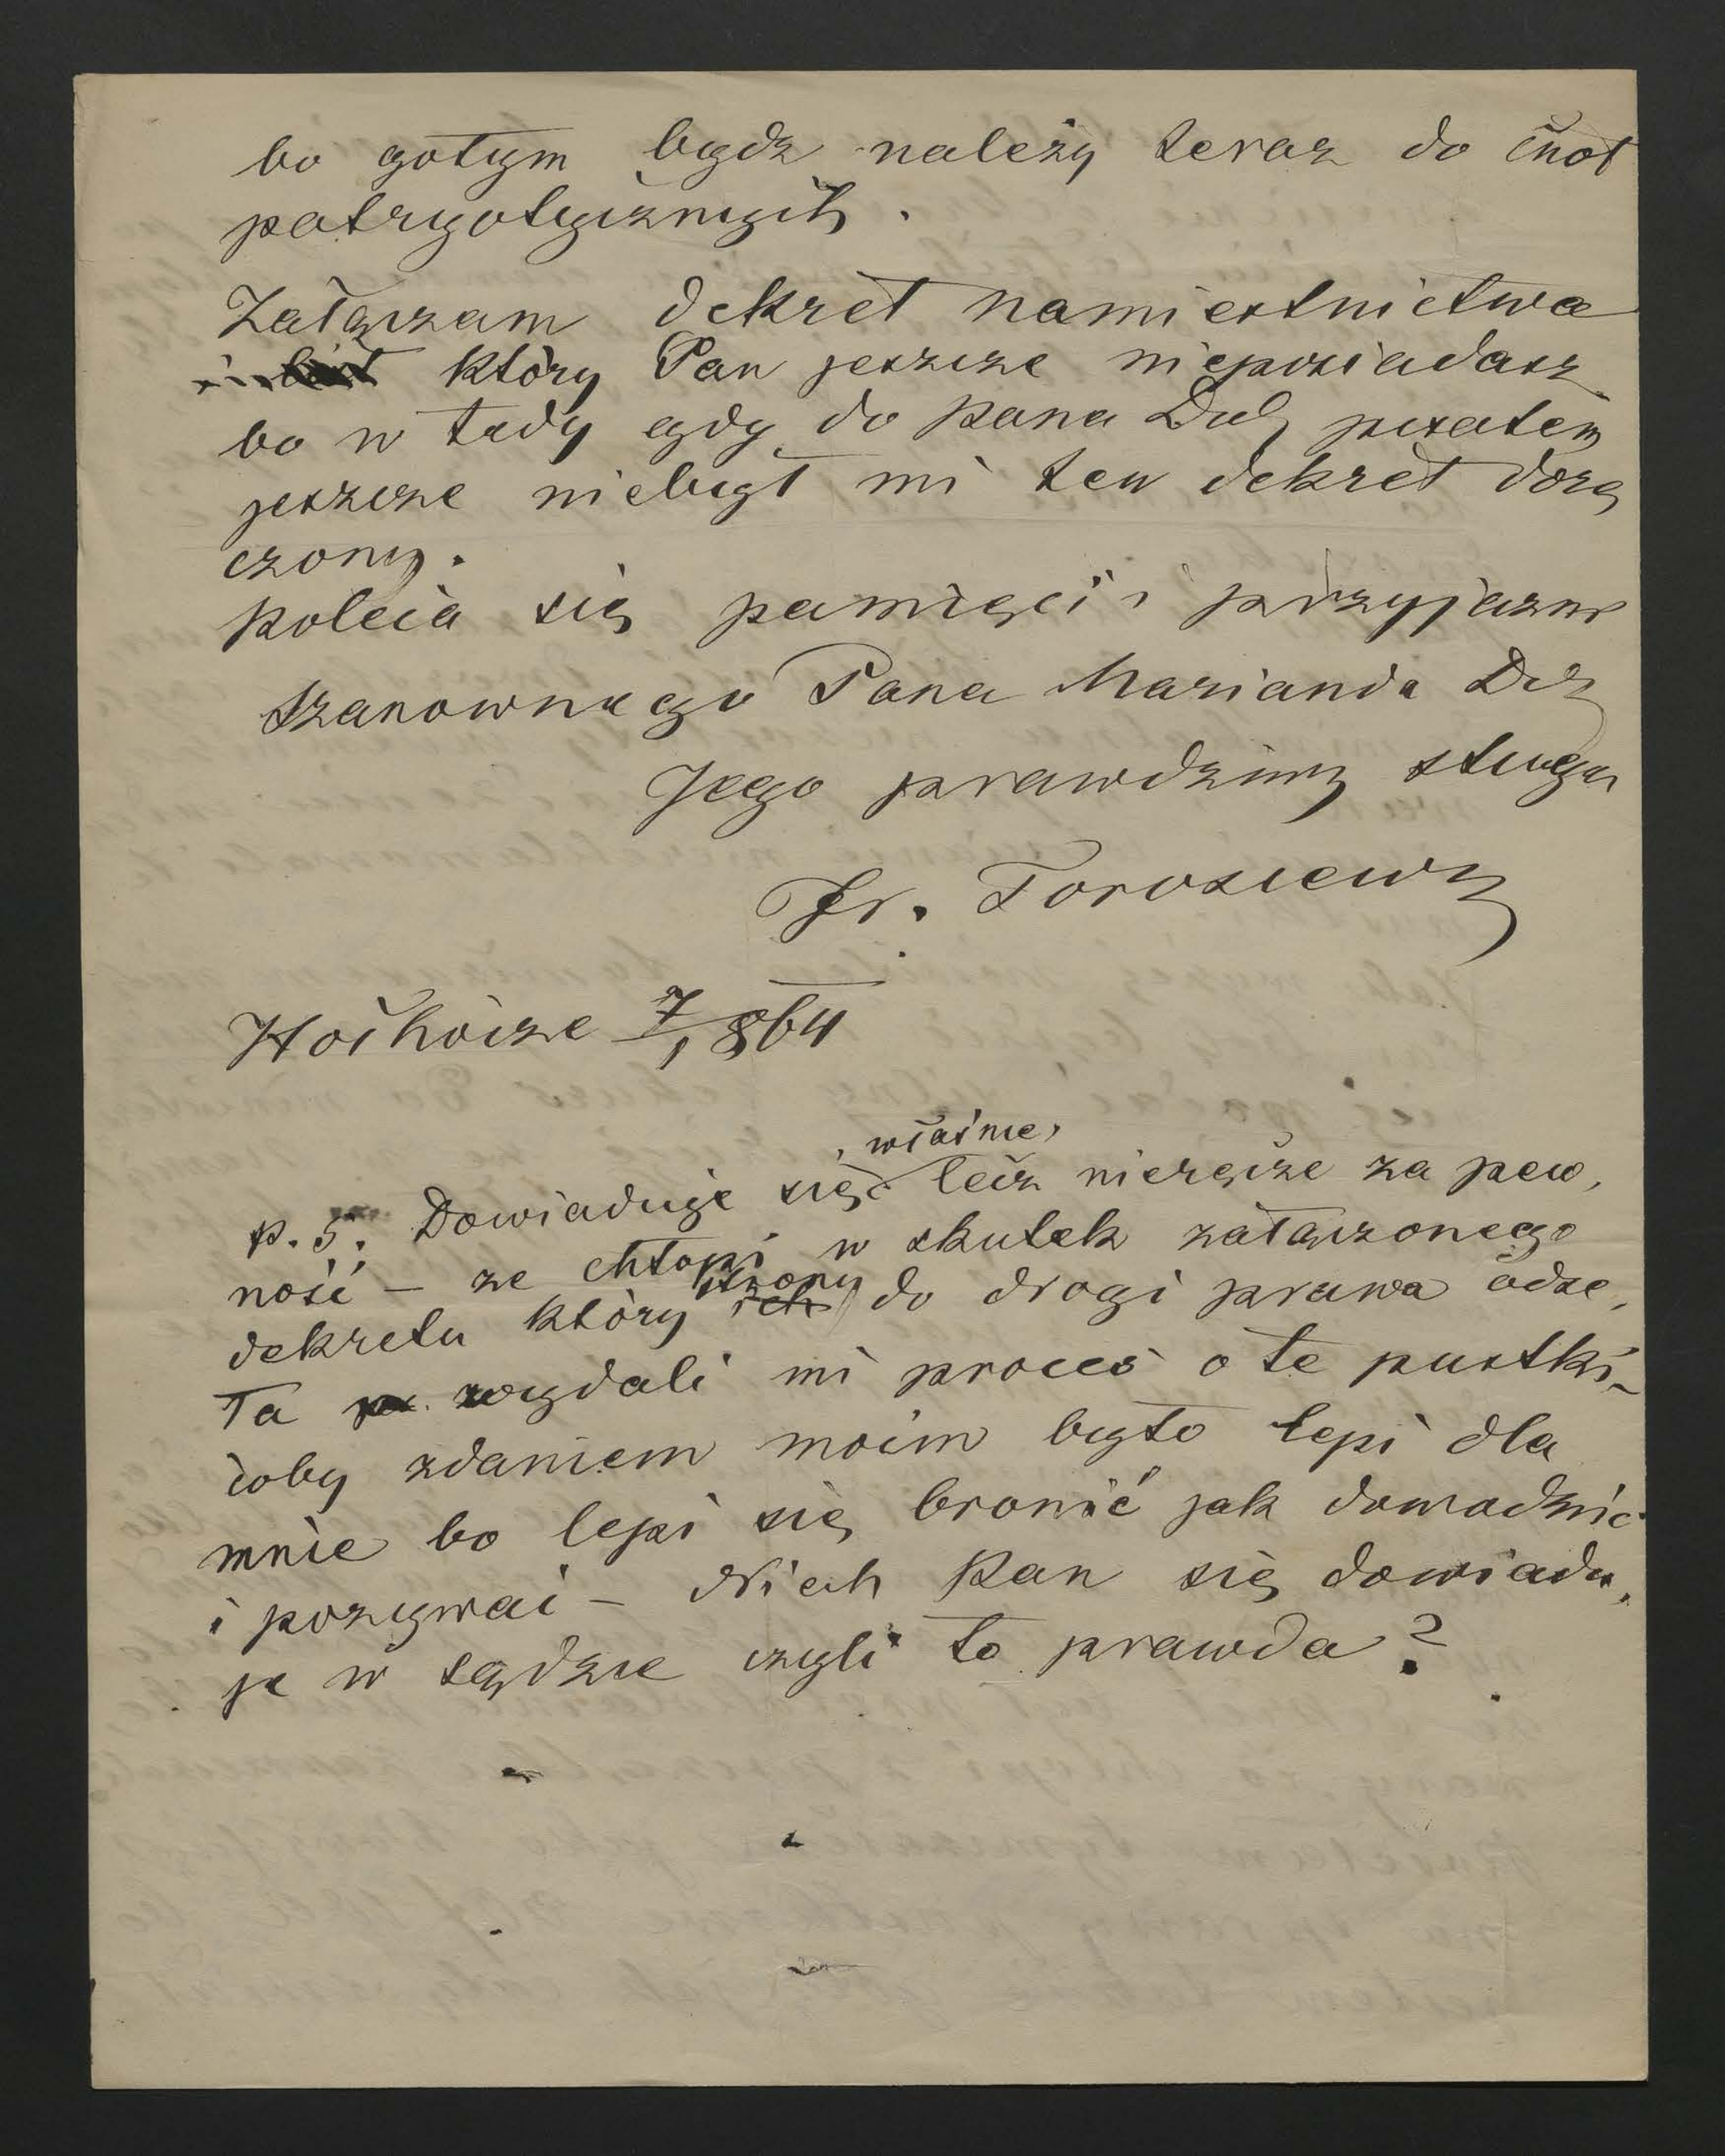 bo gołym bydz należy teraz do cnot
patryotycznych.
Załączam dekret namiestnictwa
który Pan jeszcze nieposiadasz
bo w tedy gdy do Pana Dob pisałem
jeszcze niebył mi ten dekret dorę
czony.
Poleca się pamięci i przyjazni
szanownego Pana Marianda Dob
Jego prawdziwy sługa
Fr. Torosiewicz
7/1 864
właśnie,
p.s. Dowiaduje się lecz nieręcze za pew,
ność – ze chłopi w skutek załączonego
strony
dekretu który ich do drogi prawa odse,
ła wydali mi proces o te pustki –
coby zdaniem moim było lepi dla
mnie bo lepi się bronić jak dowodzić
i pozywać – Niech Pan się dowiadu,
je w sądzie czyli to prawda?